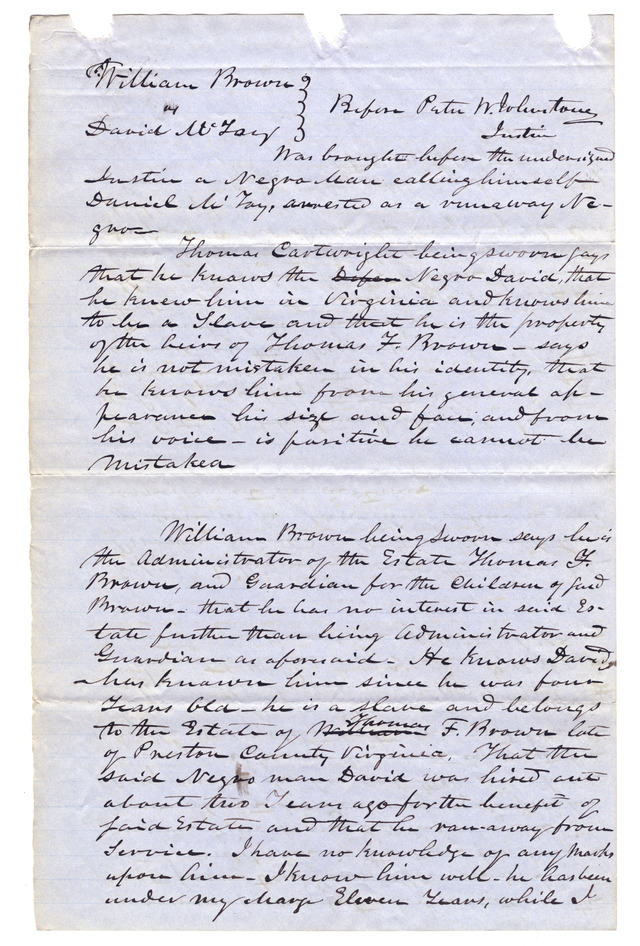 William Brown
vs
David McTay
Before Pater W. Johnstone
Justice
Was brought before the undersigned
Justice a Negro Man calling himself
Daniel McTay, arrested as a runaway Ne-
groe
Thomas Cartwright being sworn says
that he knows the Defen Negro David, that
he knew him in Virginia and knows him
to be a Slave and that he is the property
of the heirs of Thomas F. Brown - says
he is not mistaken in his identity, that
he knows him from his general ap-
pearance his size and face, and from
his voice - is positive he cannot be
Mistaken
William Brown being sworn says he is
the Administrator of the Estate Thomas F.
Brown, and Guardian for the Children of said
Brown - that he has no interest in said Es-
tate further than being Administrator and
Guardian as aforesaid - He knows David,
has known him since he was four
Years Old - he is a slave and belongs
to the Estate of William Thomas F. Brown late
of Preston County Virginia. That the
said Negro man David was hired out
about two Years ago for the benefit of
said Estate and that he ran-away from
Service. I have no knowledge of any Marks
upon him - I know him well - he has been
under my charge Eleven Years, while I